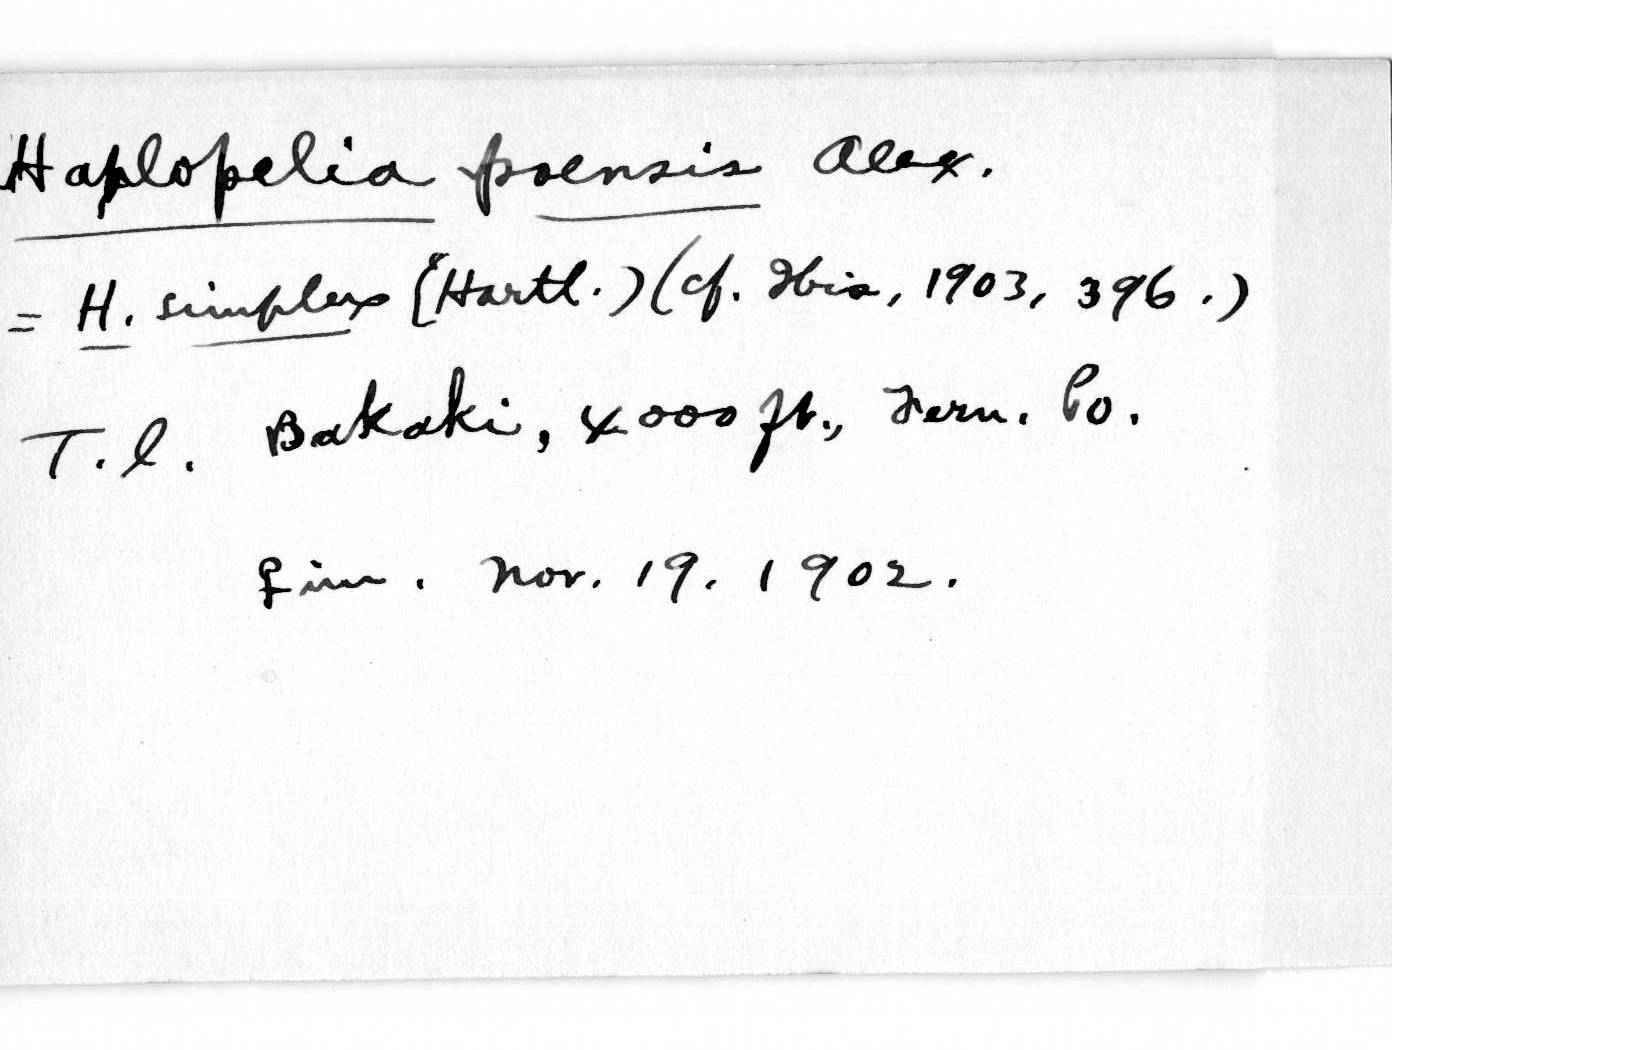 Haplopelia poensis Alex.
= H. simplex (Hartl.) (cf. Ibis, 1903, 396.)
T.l. Bakaki, 4000 ft., Fern. Po.
♀ imm. Nov. 19. 1902.